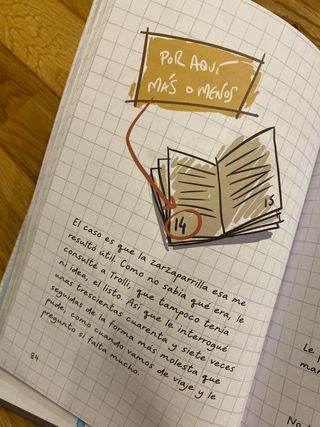 POR AQUÍ
MÁS O MENOS
14
15
El caso es que la zarzaparrilla esa me
resultó útil. Como no sabía qué era, le
consulté a Trolli, que tampoco tenía
ni idea, el listo. Así que le interrogué
unas trescientas cuarenta y siete veces
seguidas de la forma más molesta que
pude, como cuando vamos de viaje y le
pregunto si falta mucho.
84
Le
mar
No s